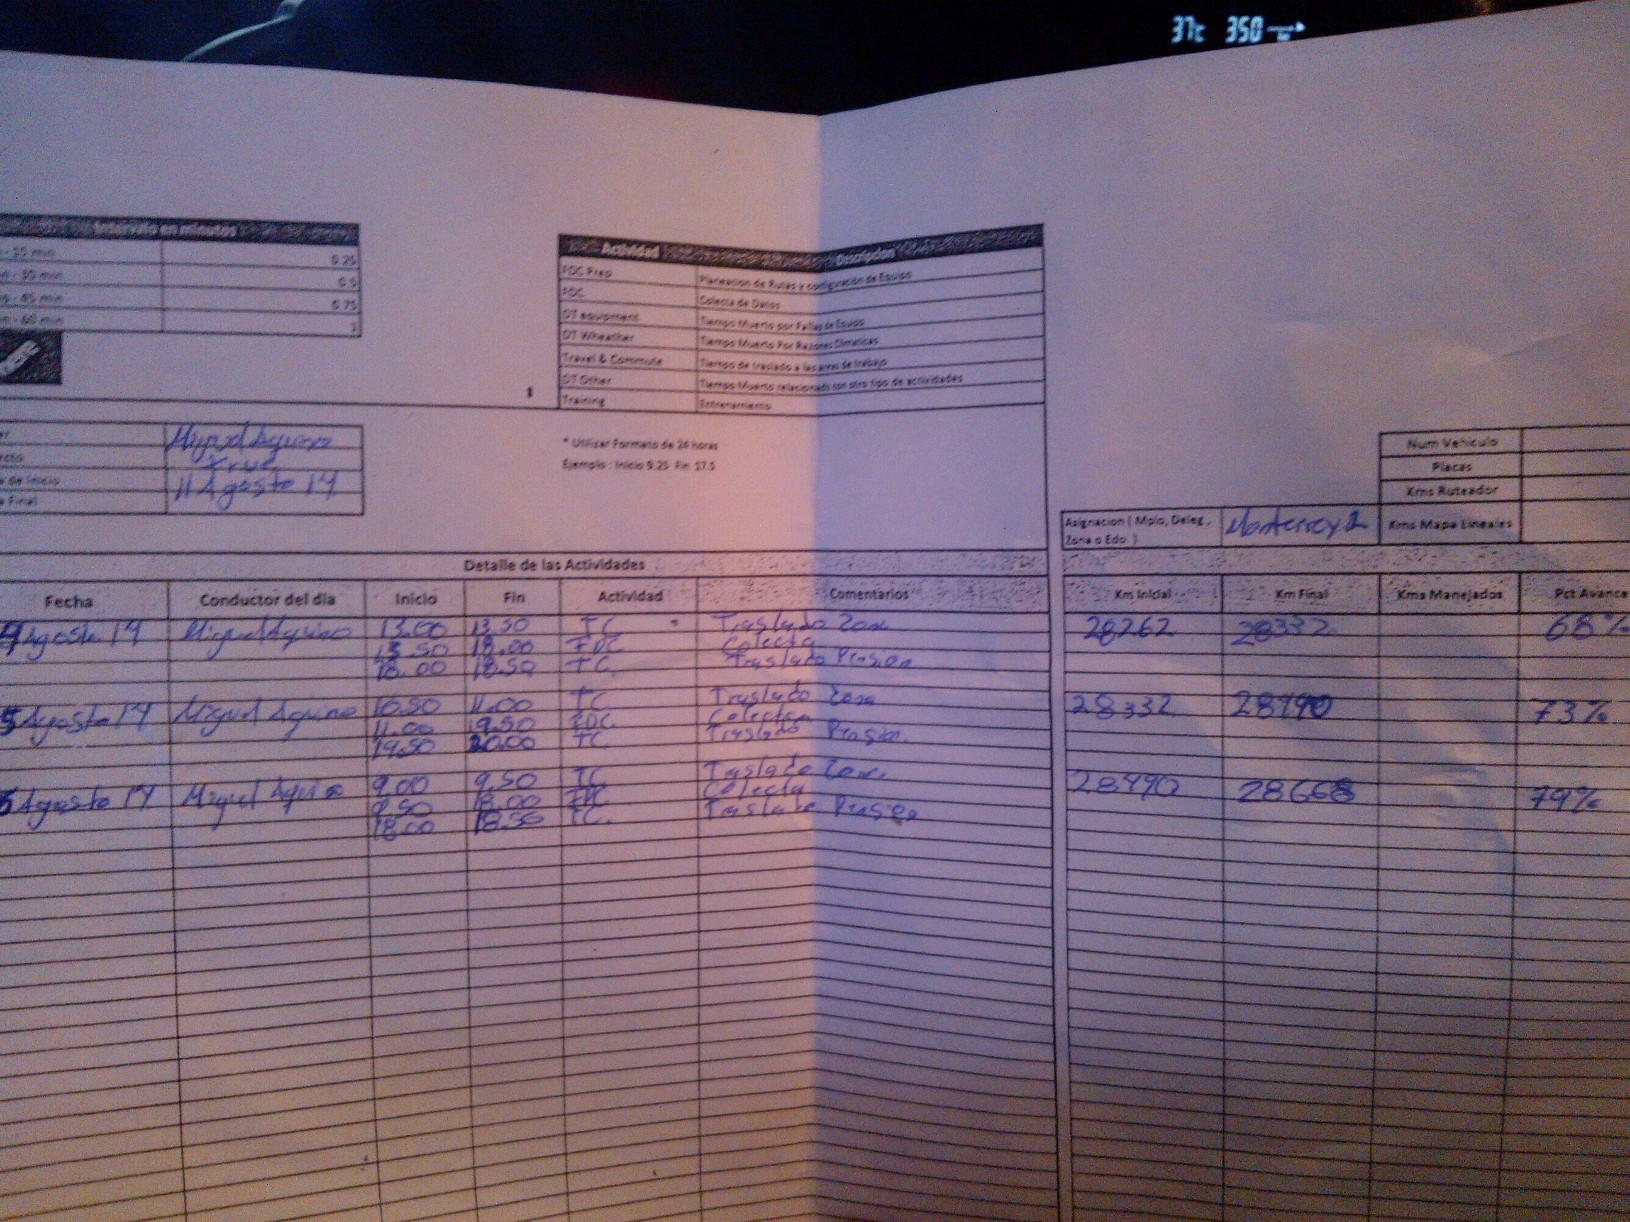 37c 350
Intervalo en minutos
- 15 min 0.25
- 30 min 0.5
- 45 min 0.75
- 60 min 1
Actividad Descripcion
FDC Prep Planeacion de Rutas y configuración de Equipo
FDC Colecta de Datos
DT equipment Tiempo Muerto por Fallas de Equipo
DT Wheather Tiempo Muerto Por Razones Climaticas
Travel & Commute Tiempo de traslado a las areas de trabajo
DT Other Tiempo Muerto relacionado con otro tipo de actividades
Training Entrenamiento
1
Miguel Aquino
True
de Inicio 11 Agosto 14
Final
* Utilizar Formato de 24 horas
Ejemplo : Inicio 9.25 Fin 17.5
Num Vehiculo
Placas
Kms Ruteador
Kms Mapa Lineales
Asignacion ( Mpio, Deleg., Monterrey 2
Zona o Edo. )
Detalle de las Actividades
Fecha Conductor del dia Inicio Fin Actividad Comentarios Km Inicial Km Final Kms Manejados Pct Avance
4 Agosto 14 Miguel Aquino 13.00 13.50 TC Traslado Zona 28262 28332 68%
13.50 18.00 FDC Colecta
18.00 18.50 TC Traslado Pension
5 Agosto 14 Miguel Aquino 10.50 11.00 TC Traslado Zona 28332 28490 73%
11.00 19.50 FDC Colecta
19.50 20.00 TC Traslado Pension
6 Agosto 14 Miguel Aquino 9.00 9.50 TC Traslado Zona 28490 28668 79%
9.50 18.00 FDC Colecta
18.00 18.50 TC. Traslado Pension